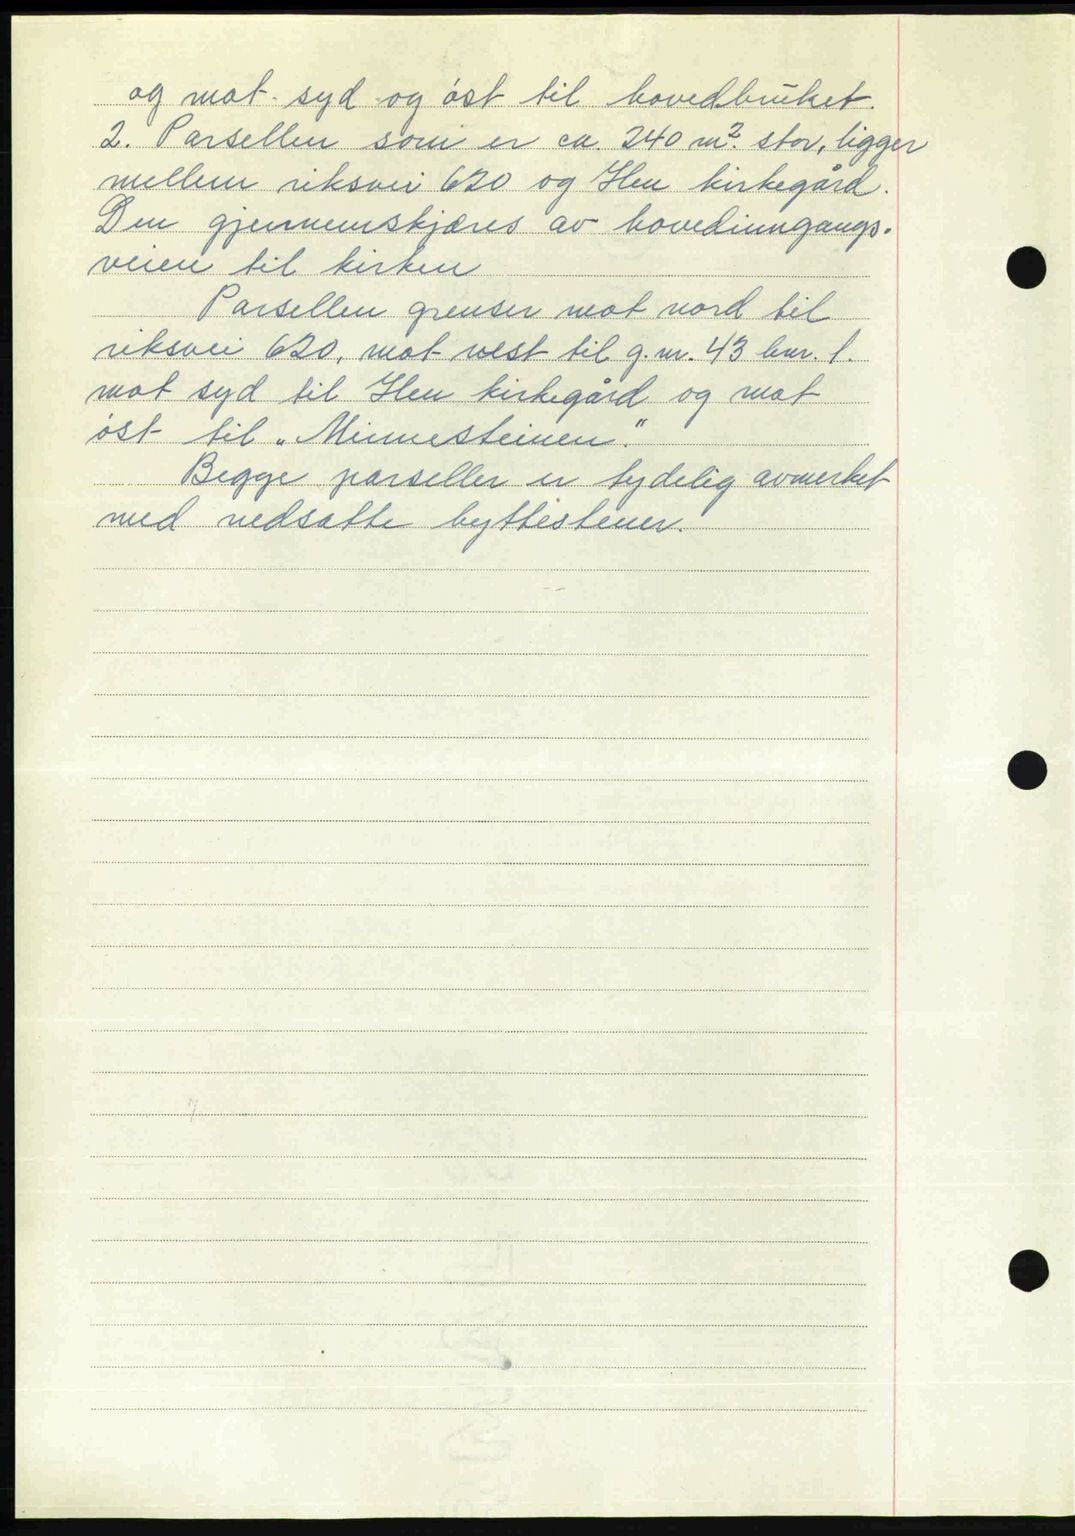 og mot syd og øst til hovedbruket.
2. Parsellen som er ca. 240 m². stor, ligger
mellem riksvei 620 og Hen kirkegård.
Den gjennemskjæres av hovedinngangs-
veien til kirken
Parsellen grenser mot nord til
riksvei 620, mot vest til g.nr. 43 bnr. 1.
mot syd til Hen kirkegård og mot
øst til „Minnesteinen."
Begge parseller er tydelig avmerket
med nedsatte byttestener.